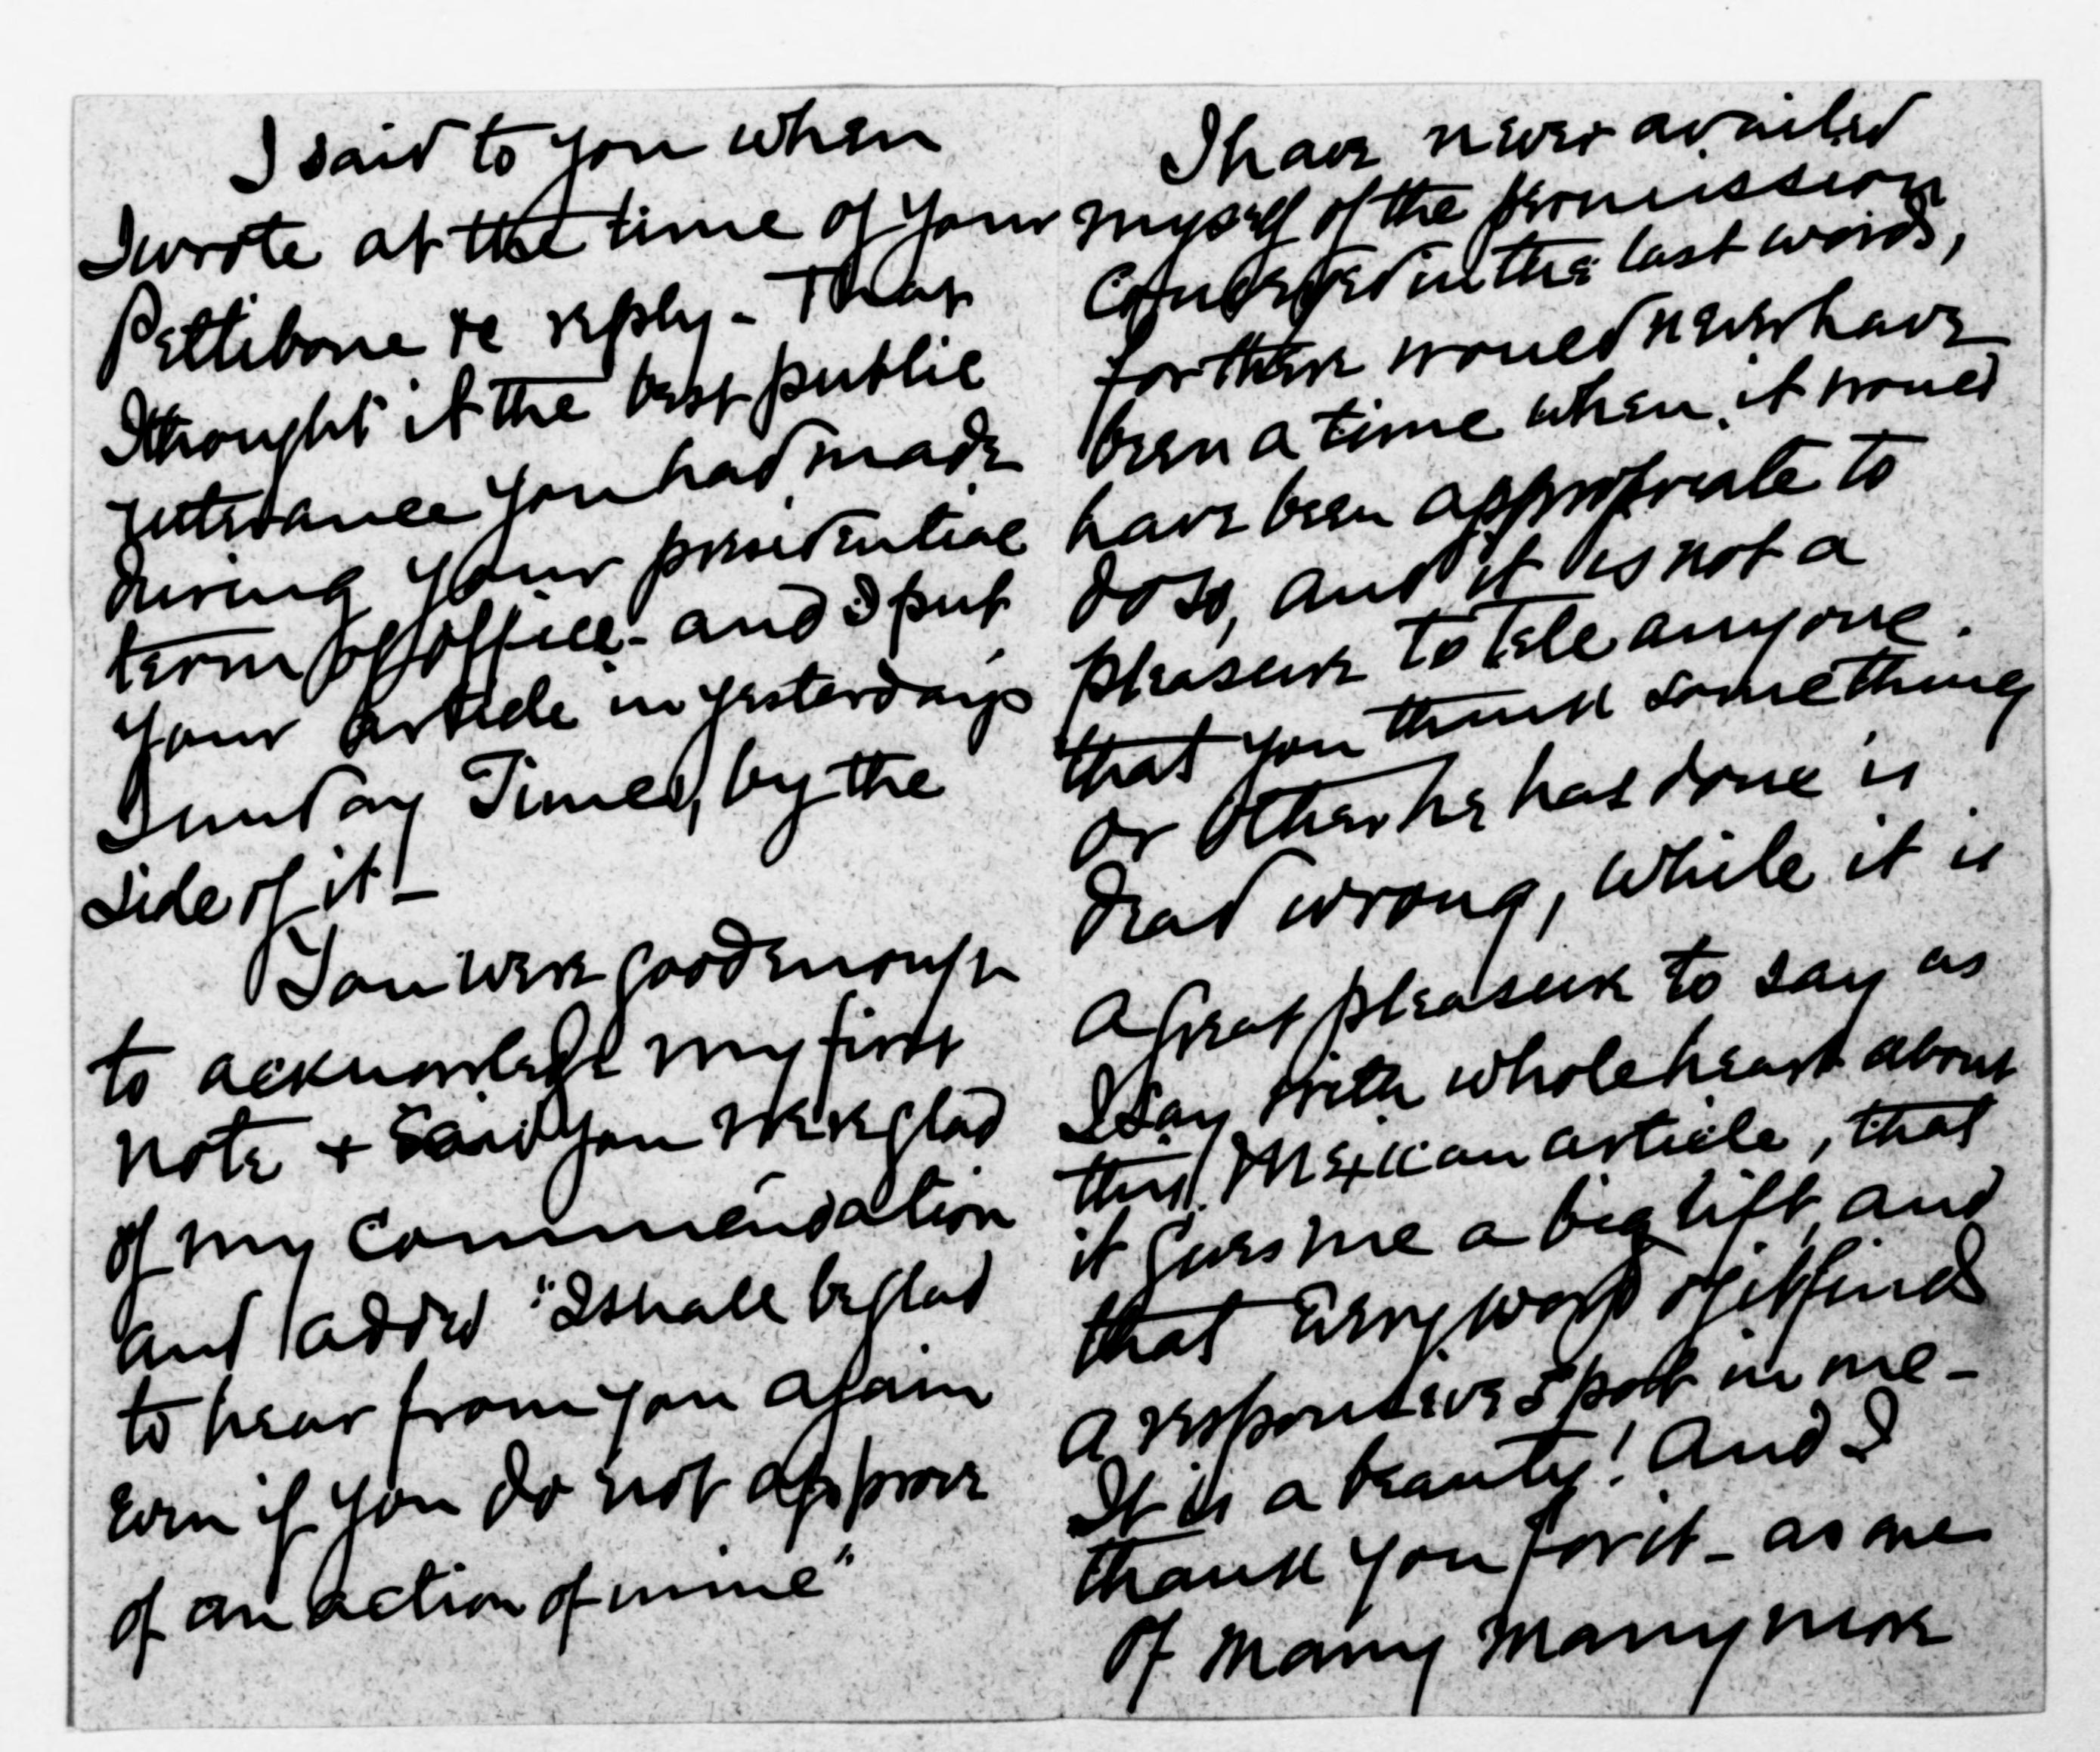 I said to you when
I wrote at the time of your
Pettibone re reply - That
I thought it the best public
utterance you had made
during your presidential
term of office - and I put
your article in yesterday's
Sunday Times, by the
side of it! -
You were good enough
to acknowledge my first
note + said you were glad
of my commendation
and added "I shall be glad
to hear from you again
even if you do not approve
of an action of mine"
I have never availed
myself of the permission
conveyed in the last words,
for there would never have
been a time when it would
have been appropriate to
do so, and it is not a
pleasure to tell anyone
that you think something
or other he has done is
dead wrong, while it is
a great pleasure to say as
I say with whole heart about
this Mexican article, that
it gives me a big lift, and
that every word of it finds
a responsive spot in me -
It is a beauty! And I
thank you for it - as one
of many many more